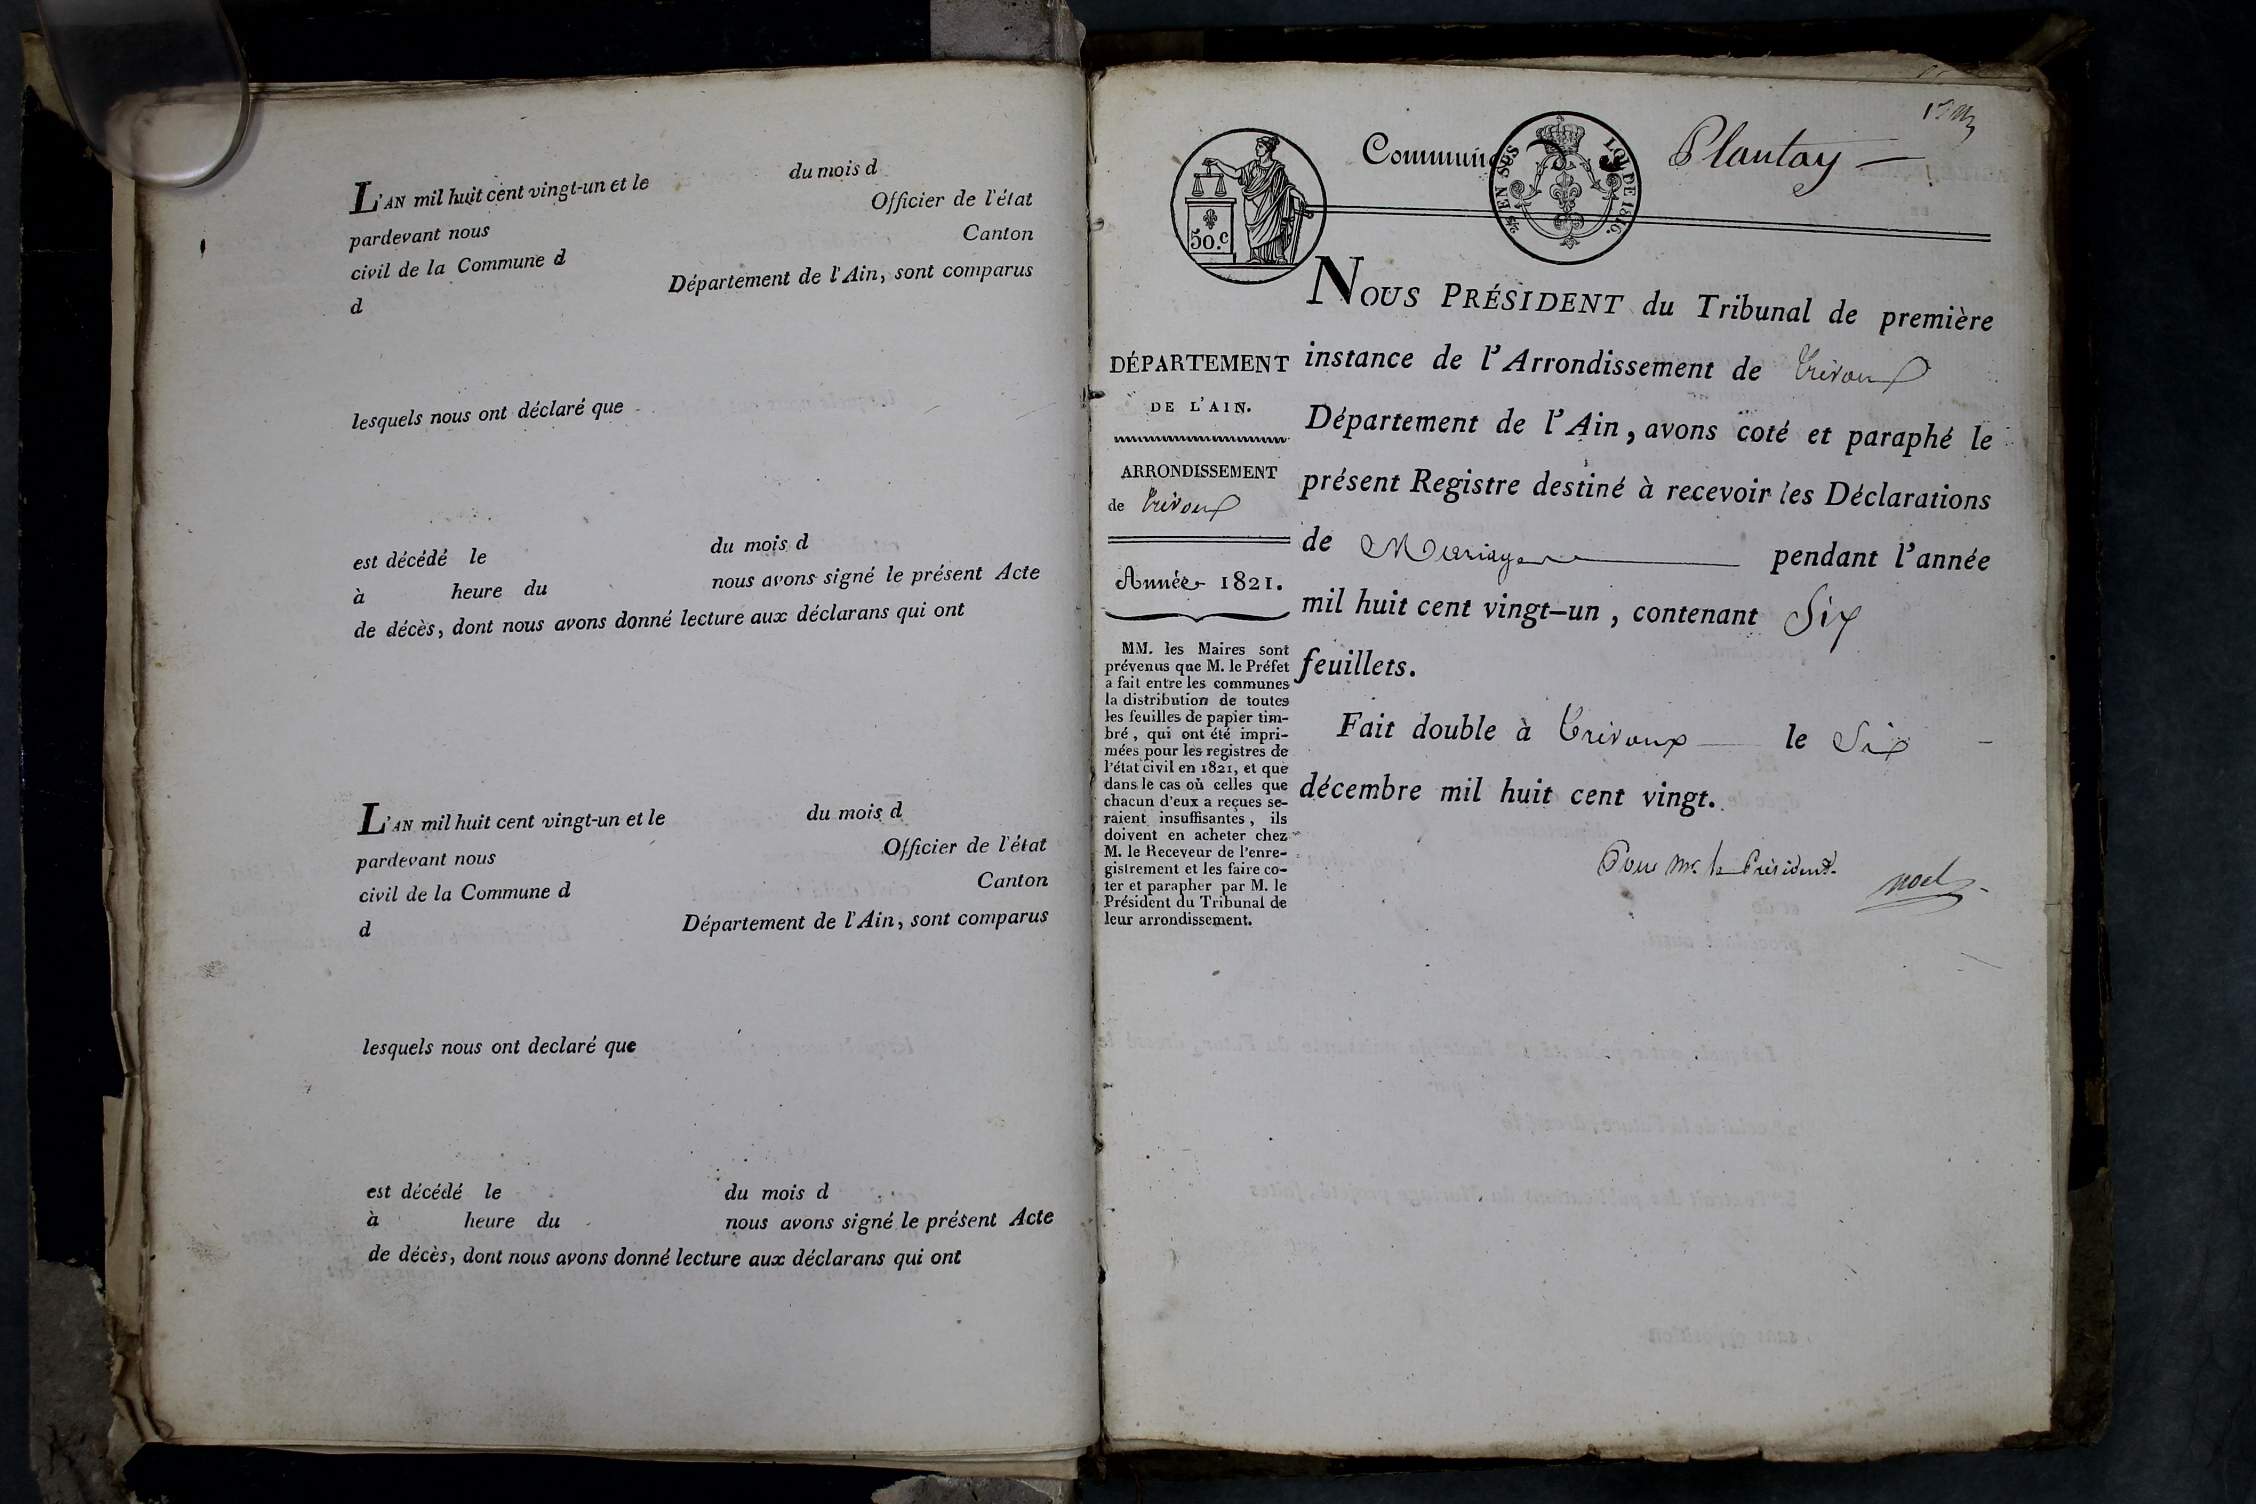 L'AN mil huit cent vingt-un et le du mois d
pardevant nous Officier de l'état
civil de la Commune d Canton
d Département de l'Ain, sont comparus
lesquels nous ont déclaré que
est décédé le du mois d
à heure du nous avons signé le présent Acte
de décès, dont nous avons donné lecture aux déclarans qui ont
L'AN mil huit cent vingt-un et le du mois d
pardevant nous Officier de l'état
civil de la Commune d Canton
d Département de l'Ain, sont comparus
lesquels nous ont declaré que
est décédé le du mois d
à heure du nous avons signé le présent Acte
de décès, dont nous avons donné lecture aux déclarans qui ont
Commune Plantay
50.c
25 EN SUS
LOI DE 1816.
DÉPARTEMENT
DE L'AIN.
ARRONDISSEMENT
de Trévoux
Année 1821.
MM. les Maires sont
prévenus que M. le Préfet
a fait entre les communes
la distribution de toutes
les feuilles de papier tim-
bré, qui ont été impri-
mées pour les registres de
l'état civil en 1821, et que
dans le cas où celles que
chacun d'eux a reçues se-
raient insuffisantes, ils
doivent en acheter chez
M. le Receveur de l'enre-
gistrement et les faire co-
ter et parapher par M. le
Président du Tribunal de
leur arrondissement.
NOUS PRÉSIDENT du Tribunal de première
instance de l'Arrondissement de Trévoux
Département de l'Ain, avons coté et paraphé le
présent Registre destiné à recevoir les Déclarations
de Mariage pendant l'année
mil huit cent vingt-un, contenant Six
feuillets.
Fait double à Trévoux le Six
décembre mil huit cent vingt.
Pour Mr. le Président
noel